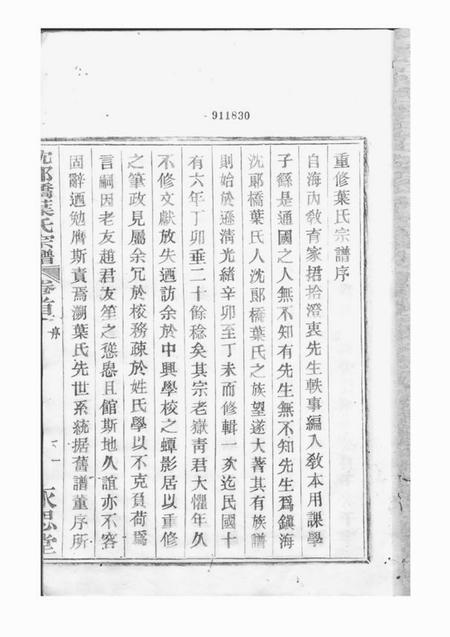 911830
重修葉氏宗譜序
自海內教育家捃拾澄衷先生軼事編入教本用課學
子繇是通國之人無不知有先生無不知先生爲鎮海
沈郎橋葉氏人沈郎橋葉氏之族望遂大著其有族譜
則始於遜清光緒辛卯至丁未而修輯一次迄民國十
有六年丁卯垂二十餘稔矣其宗老嶽青君大懼年久
不修文獻放失迺訪余於中興學校之蟫影居以重修
之筆政見屬余冗於校務疎於姓氏學以不克負荷爲
言嗣因老友趙君友笙之慫恿且館斯地久誼亦不容
固辭迺勉膺斯責焉溯葉氏先世系統据舊譜董序所
沈郎橋葉氏宗譜
卷首
序
一
永思堂